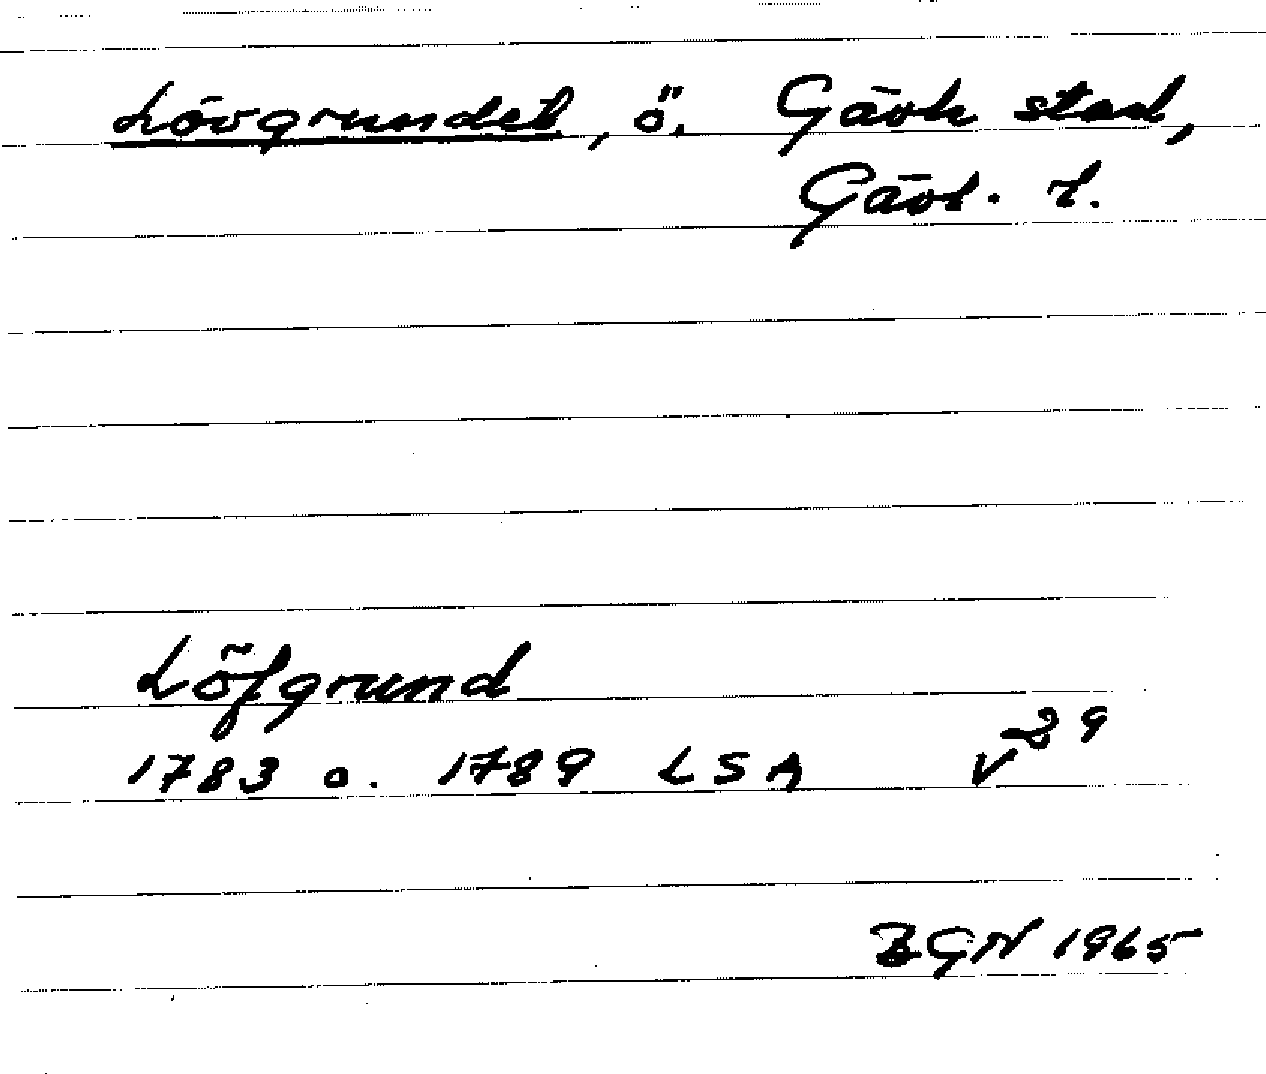 Lövgrundet, ö. Gävle stad,
Gävl. l.
Löfgrund
1783 o. 1789 LSA V 29
BGN 1965